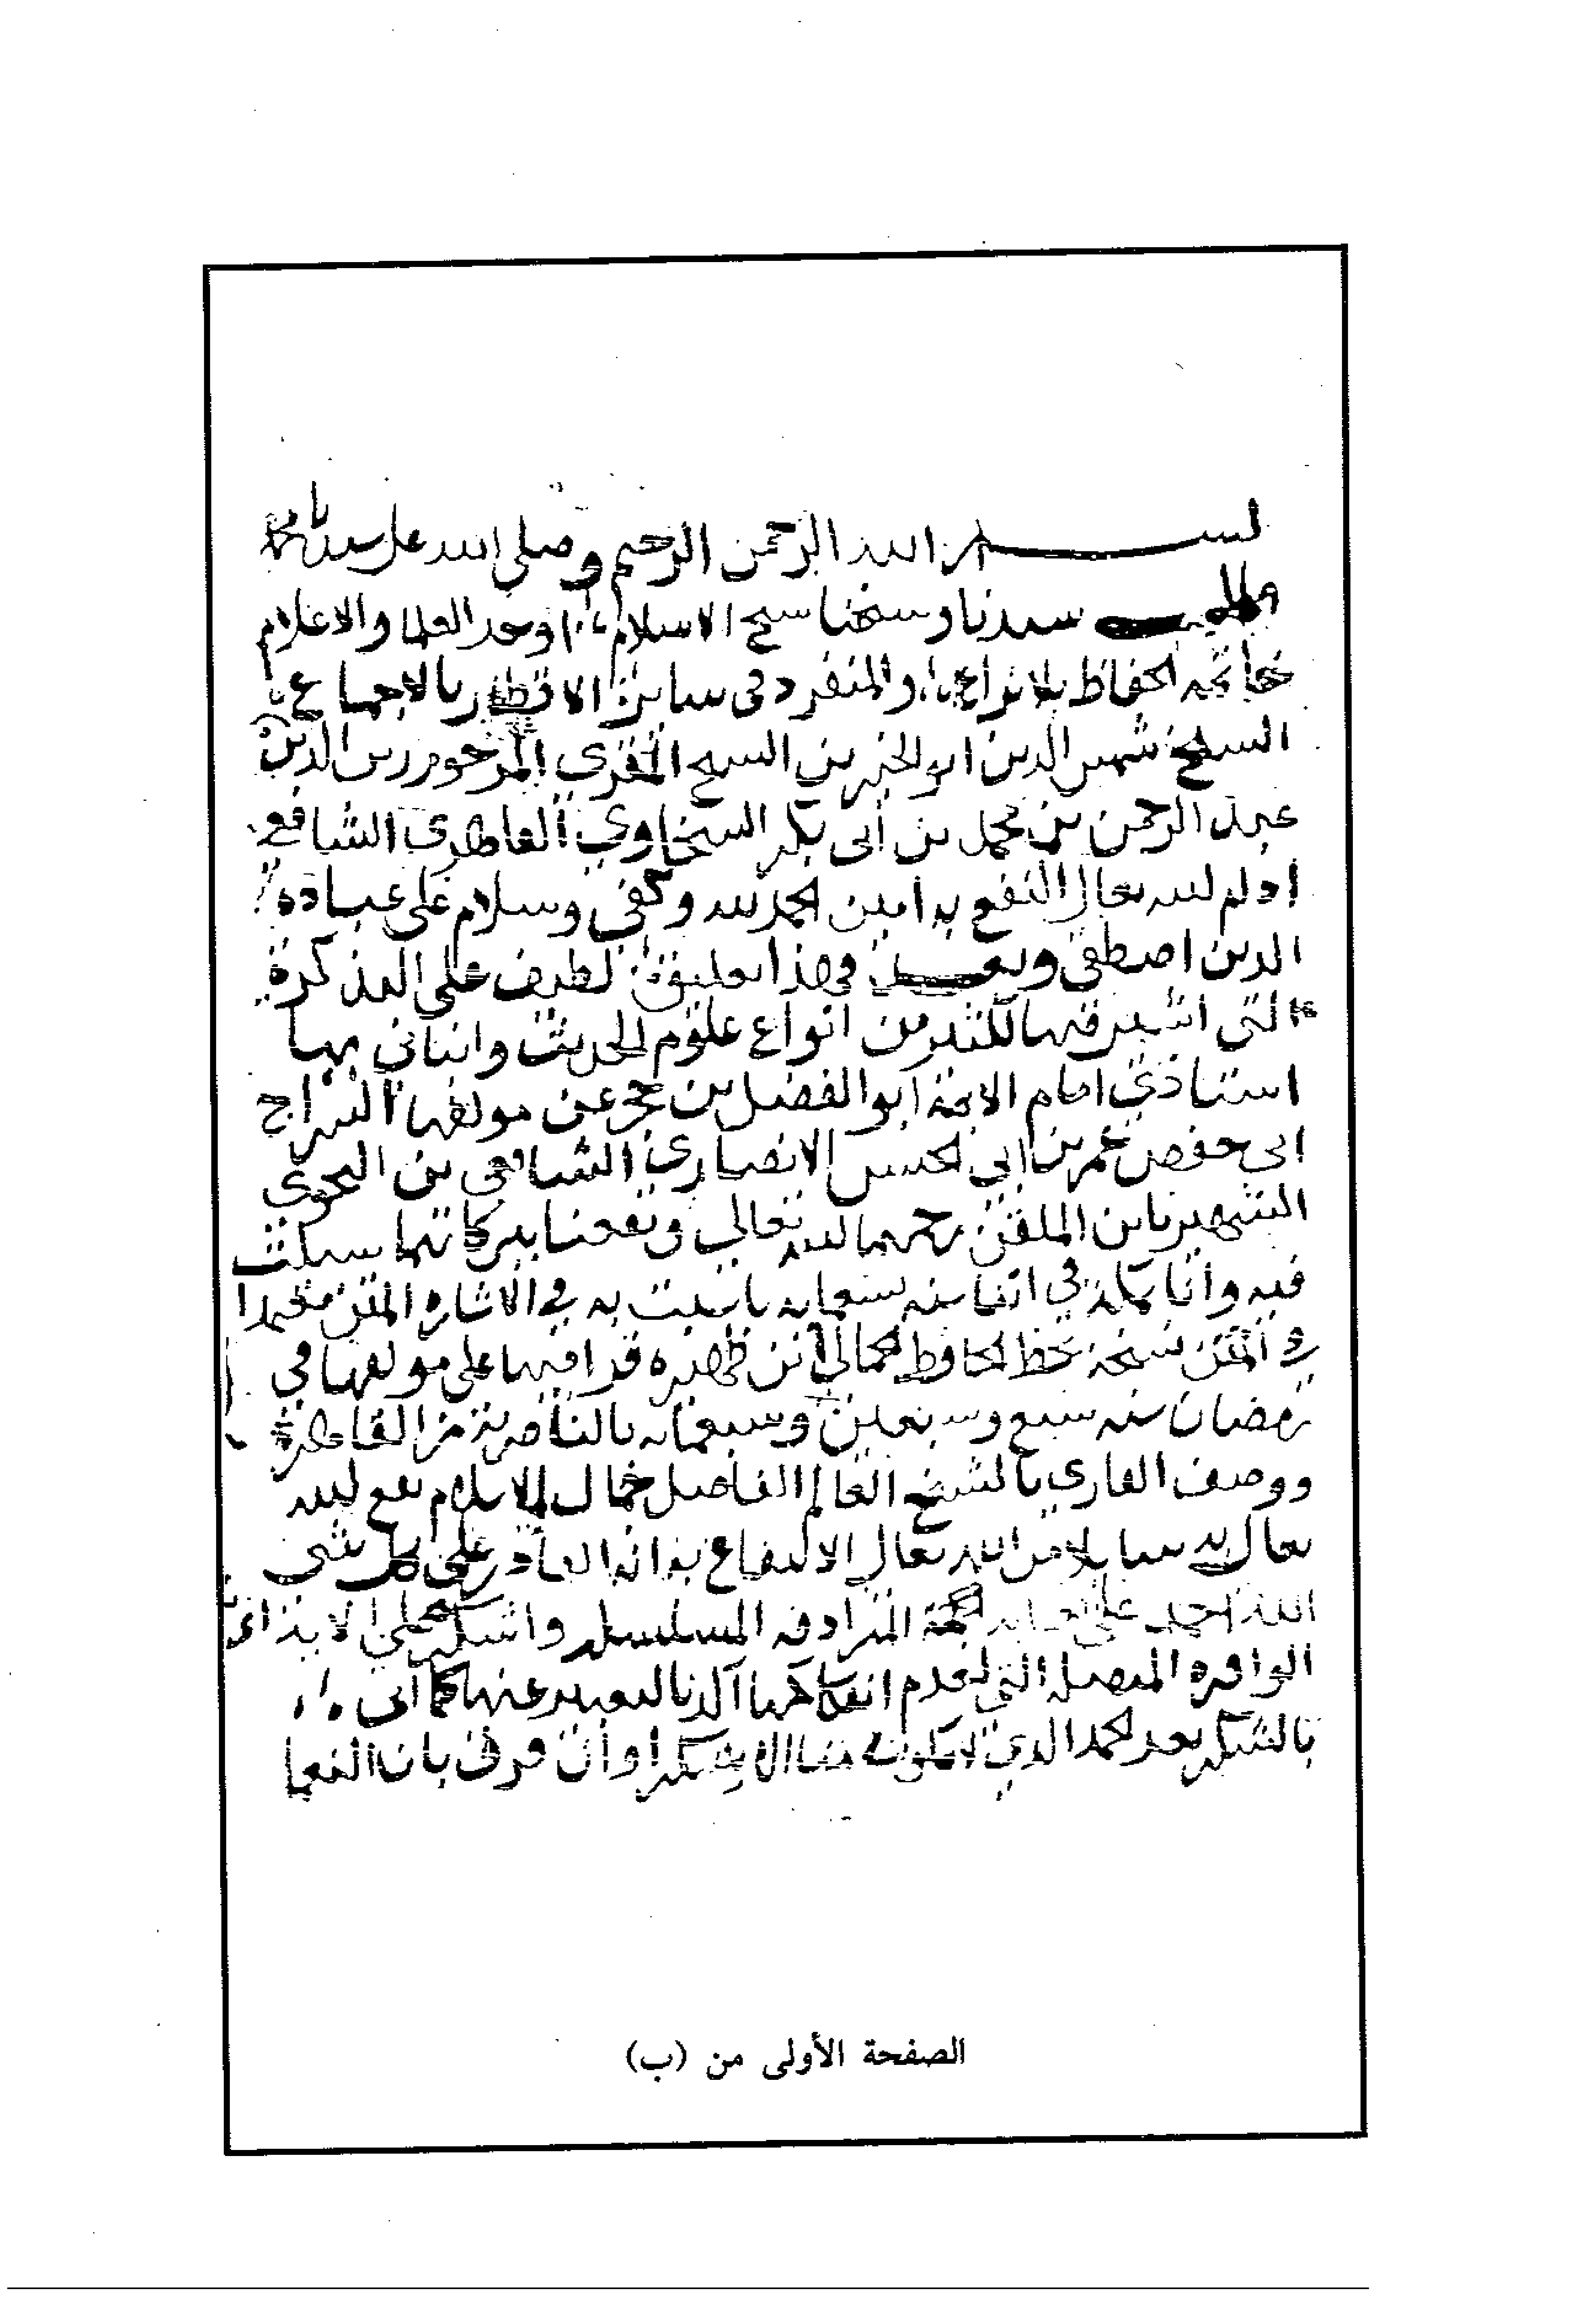 بسم الله الرحمن الرحيم وصلى الله على سيدنا محمد
سيدنا وشيخنا شيخ الاسلام اوحد العلما والاعلام
خاتمة الحفاظ بلا نزاع والمنفرد في ساير الاقطار بالاجماع
الشيخ شمس الدين ابو الخير بن الشيخ المقري المرحوم زين الدين
عبد الرحمن بن محمد بن أبي بكر السخاوي القاهري الشافعي
ادام الله تعالى النفع به امين الحمد لله وكفى وسلام على عباده
الذين اصطفى وبعد فهذا تعليق لطيف على التذكرة
التي اشير فيها لكثير من انواع علوم الحديث وانباني بها
استاذي امام الايمة ابو الفضل بن حجر عن مولفها السراج
ابي حفص عمر بن ابي الحسن الانصاري الشافعي بن النحوي
الشهير بابن الملقن رحمهما الله تعالى ونفعنا ببركاتهما سلكت
فيه وانا بمكة في اثنا سنه تسعمايه بانبت به في الاشاره المتن معتمدا
في المتن نسخة بخط الحافظ الجمالي ابن ظهيره قرا فيها على مولفها في
رمضان سنه سبع وسبعين وسبعمايه بالناصرية من القاهرة
ووصف القاري بالشيخ العالم الفاضل جمال الاسلام نفع الله
تعالى به سايلا من الله تعالى الانتفاع به انه القادر على كل شي
الله احمد على نعمايه الجمة المترادفه المسلسله واشكره على الايذا
الوافره المتصله التي لعدم انفكاكها
بالشكر بعد الحمد الذي لا يكون الا شكرا وان فرق بان النعما
الصفحة الأولى من (ب)